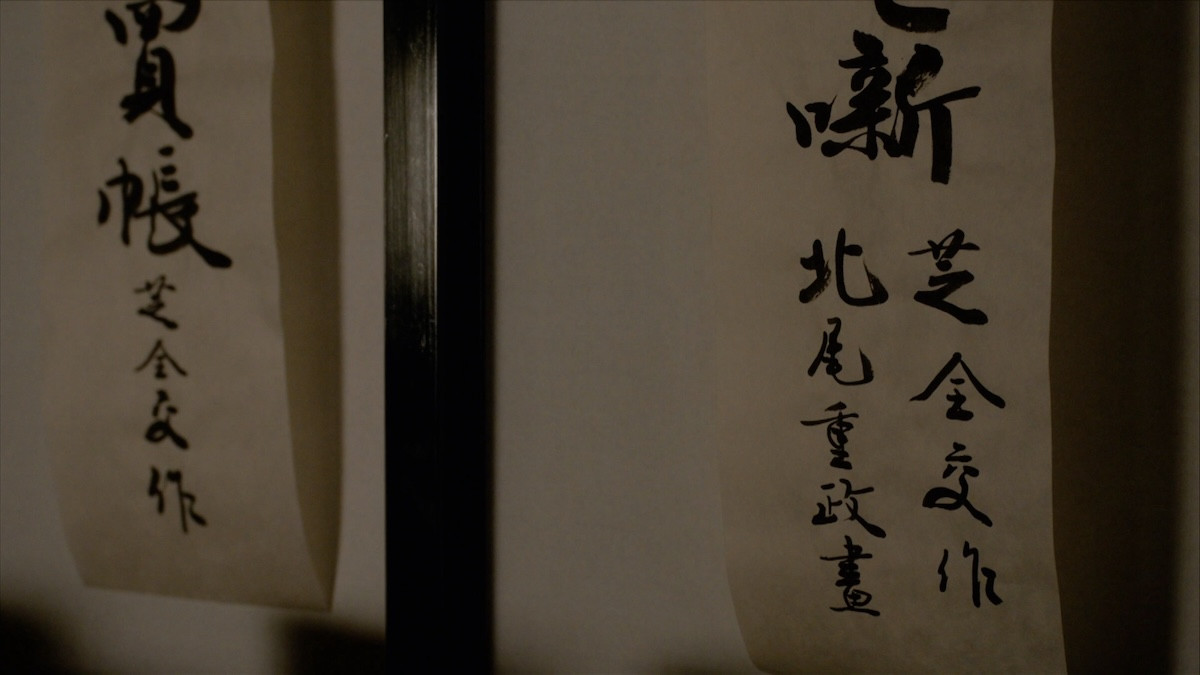 噺
芝全交作
北尾重政畫
買帳
芝全交作